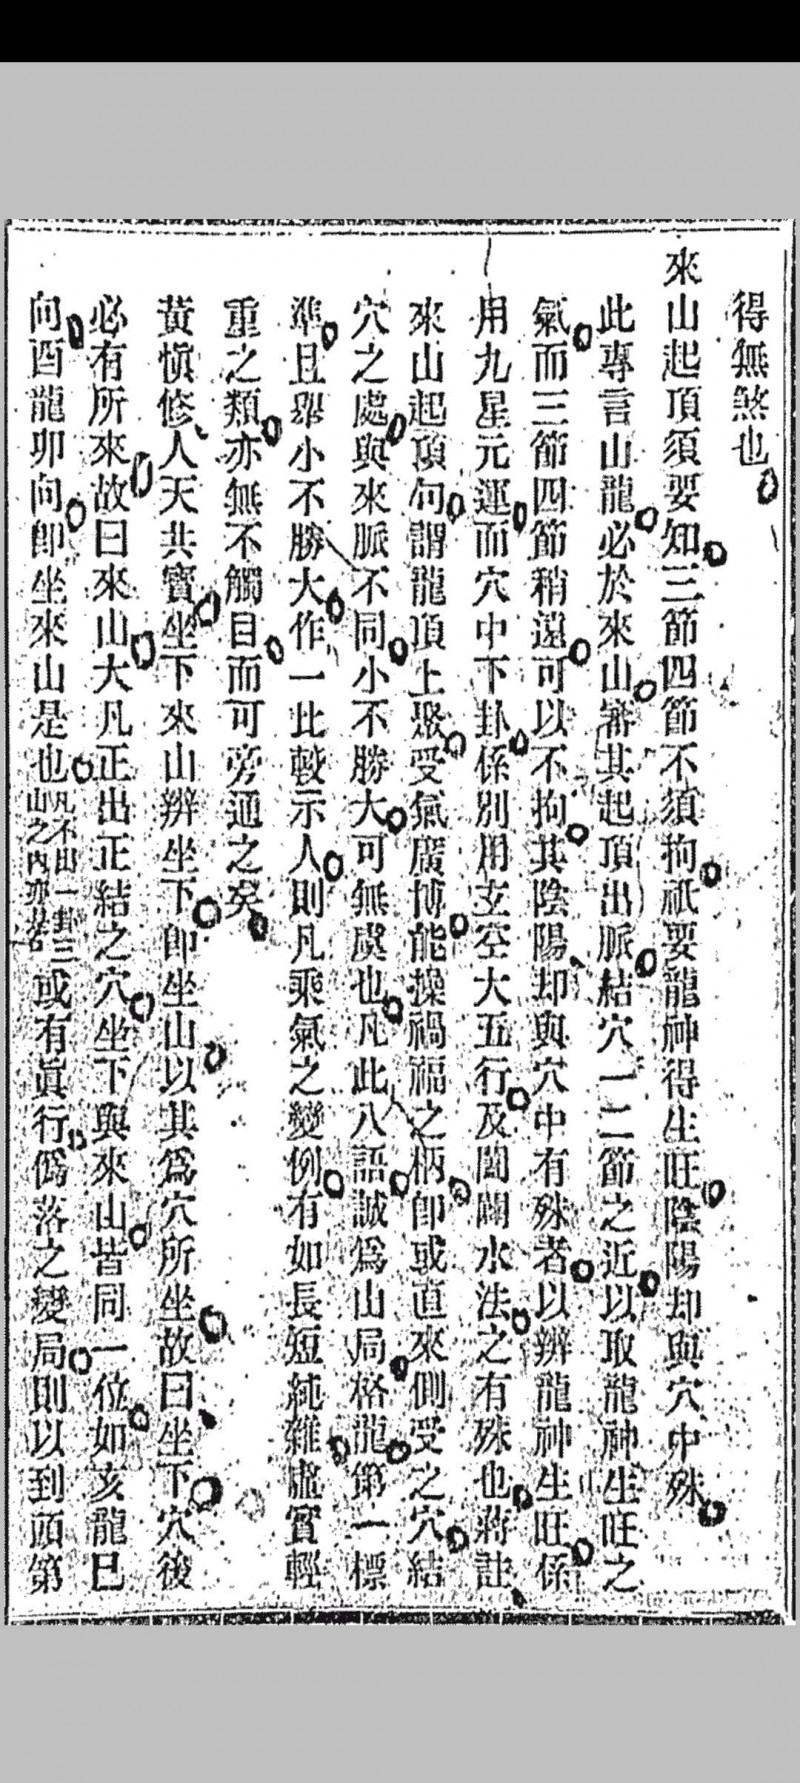 得無煞也
來山起頂須要知三節四節不須拘祇要龍神得生旺陰陽却與穴中殊
此專言山龍必於來山審其起頂出脈結穴一二節之近以取龍神生旺之
氣而三節四節稍遠可以不拘其陰陽却與穴中有殊者以辨龍神生旺係
用九星元運而穴中下卦係別用玄空大五行及闔闢水法之有殊也蔣註
來山起頂句謂龍頂上聚受氣廣博能操禍福之柄卽或直來側受之穴結
穴之處與來脈不同小不勝大可無虞也凡此八語誠爲山局格龍第一標
準且舉小不勝大作一比較示人則凡乘氣之變例有如長短純雜虛實輕
重之類亦無不觸目而可旁通之矣
黃愼修人天共寶坐下來山辨坐下卽坐山以其爲穴所坐故曰坐下穴後
必有所來故曰來山大凡正出正結之穴坐下與來山皆同一位如亥龍巳
向酉龍卯向卽坐來山是也凡不出一卦三山之內亦若或有眞行僞落之變局則以到頭第